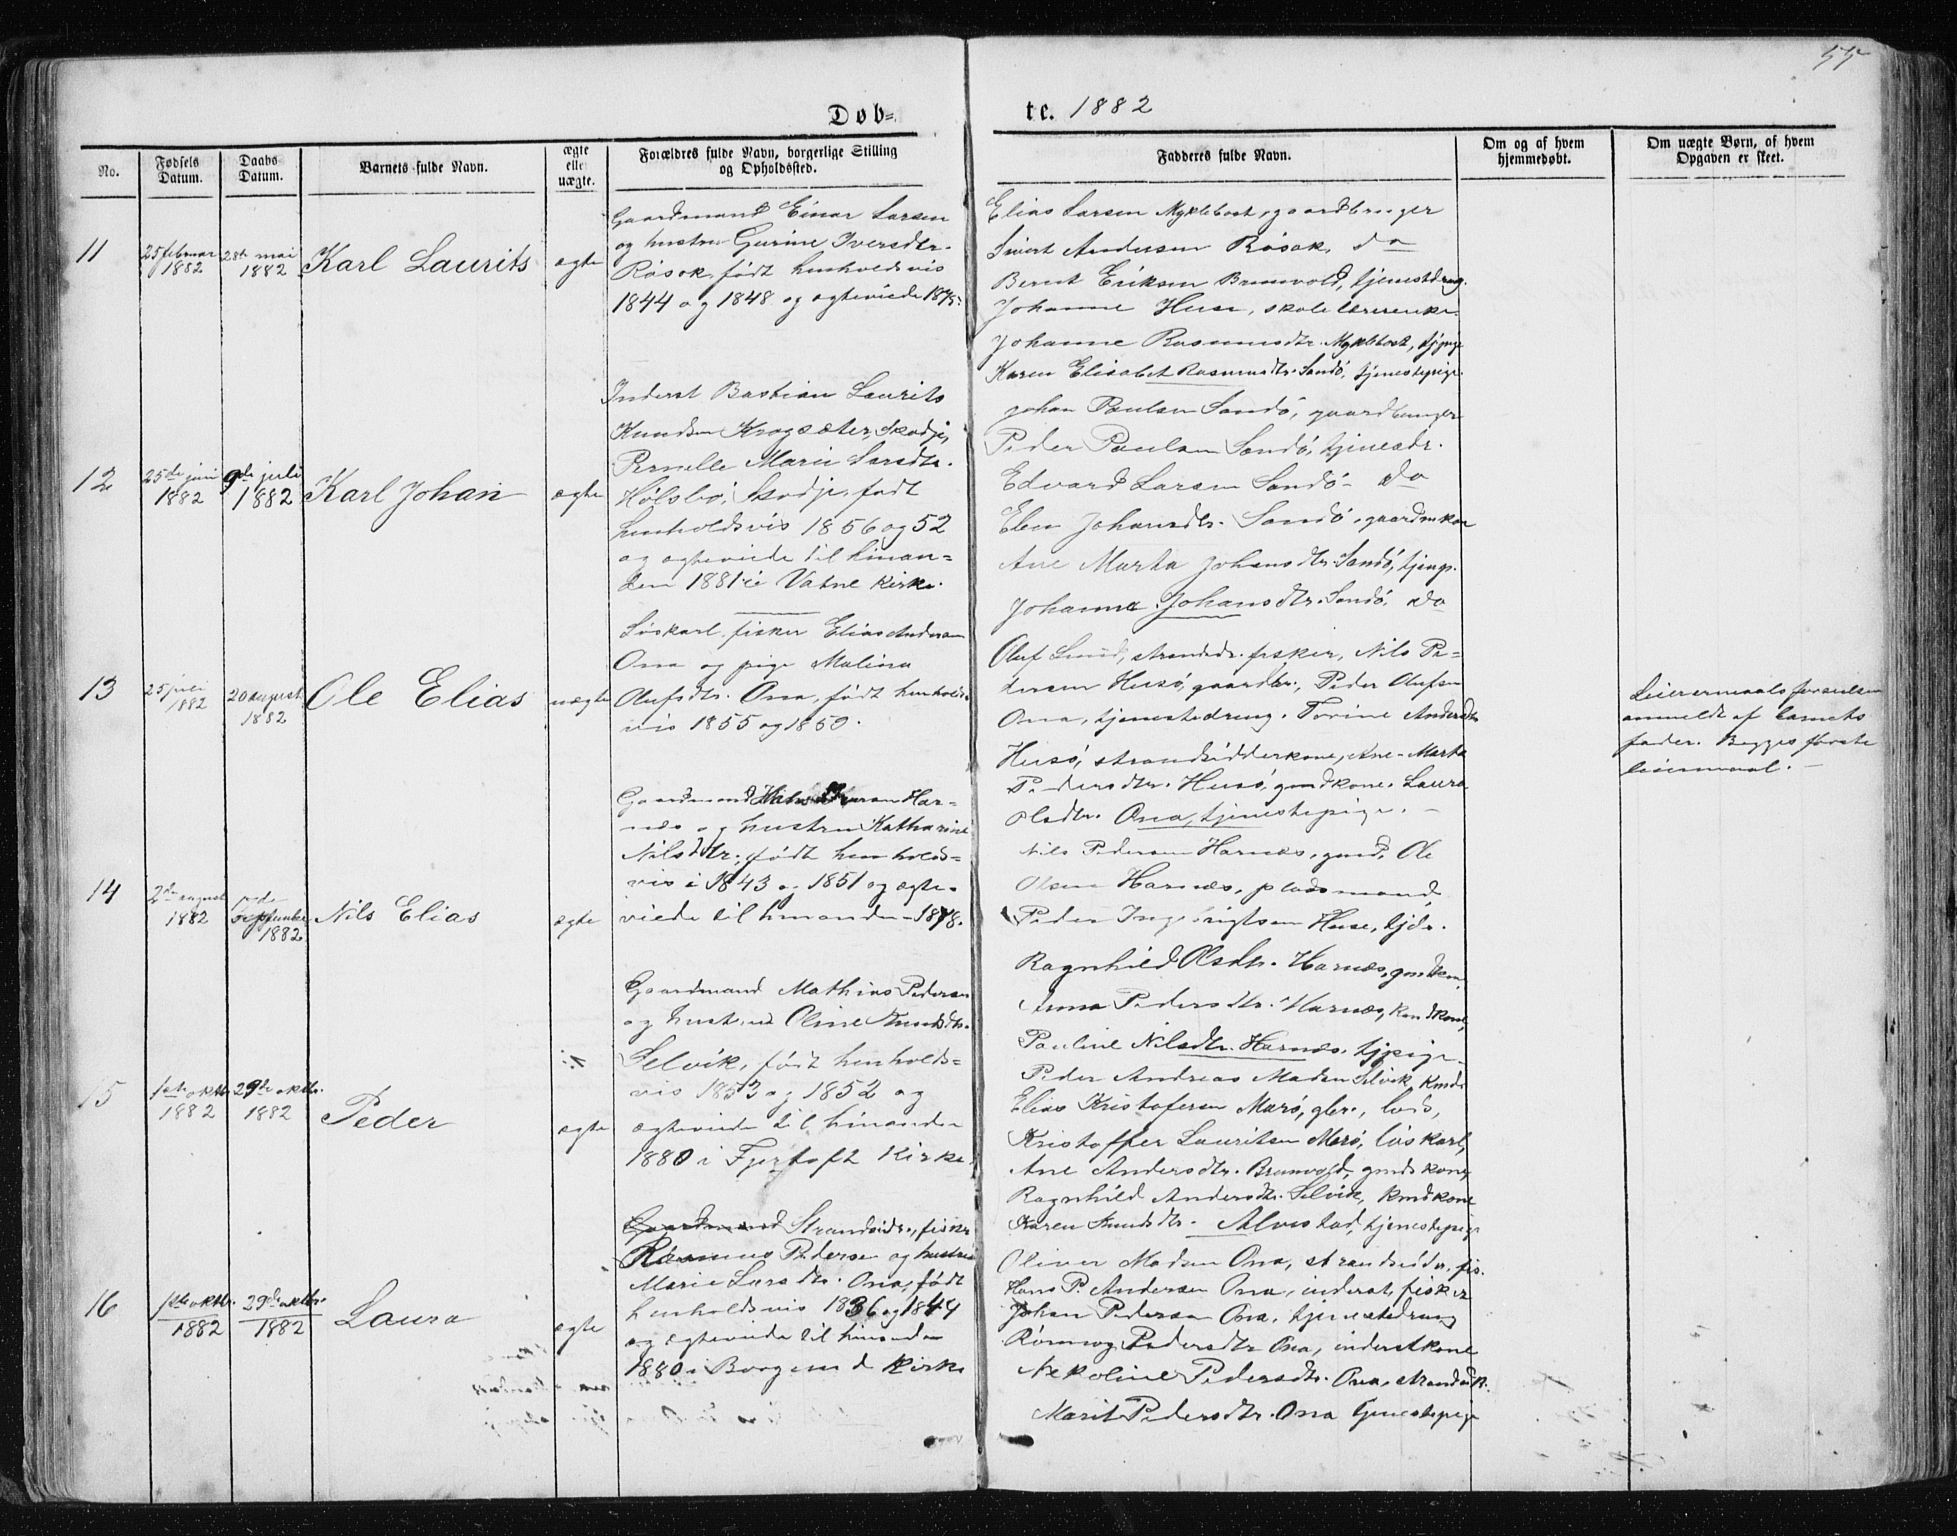 55
Døb=
te. 1882
No.
Fødsels Datum.
Daabs Datum.
Barnets fulde Navn.
ægte eller uægte.
Forældres fulde Navn, borgerlige Stilling
og Opholdssted.
Fadderes fulde Navn.
Om og af hvem
hjemmedøbt.
Om uægte Børn, af hvem
Opgaven er skeet.
11
25 februar
1882
28de mai
1882
Karl Laurits
ægte
Gaardmand Einar Larsen
og hustru Gurine Iversdtr.
Røsok, født henholdsvis
1844 og 1848 og ægteviede 1875.
Elias Larsen Myklebost, gaardbruger
Sivert Andersen Røsok, do
Bernt Eriksen Brunvold, tjenestdreng.
Johanne Huse, skolelærerenke.
Johanne Rasmusdtr. Myklebost, tjpige
Karen Elisabet Rasmusdtr. Sandø, tjenestepige.
12
25de juni
1882
9de juli
1882
Karl Johan
ægte
Inderst Bastian Laurits
Knudsen Krogsæter, Skodje,
Pernelle Marie Larsdtr.
Holsbø, Skodje, født
henholdsvis 1856 og 52
og ægteviede til hinan=
den 1881 i Vatne kirke.
Johan Paulsen Sandø, gaardbruger
Peder Paulsen Sandø, tjenestdr.
Edvard Larsen Sandø - do
Elen Johansdtr. Sandø, gaardmkone
Ane Marta Johansdtr. Sandø, tjenp.
Johanna Johansdtr. Sandø, do
13
25 juli
1882
20 august
1882
Ole Elias
uægte
Løskarl, fisker Elias Andersen
Ona og pige Malina
Olufsdtr. Ona, født henholds=
vis 1855 og 1850.
Oluf Lund, strandsdr. fisker, Nils Pe=
dersen Husø, gaardbr., Peder Olufsen
Ona, tjenestedreng. Torine Andersdtr
Husø, strandsidderkone, Ane-Marta
Pedersdtr. Husø, gmdkone. Laura
Olsdtr. Ona, tjenestepige. -
Leiermaalsforseelsen
anmeldt af barnets
fader. Begges første
leiermaal. -
14
2den august
1882
september
1882
Nils Elias
ægte
Gaardmand Har=
næs og hustru Katharine
Nilsdtr. født henholds=
vis i 1843 og 1851 og ægte=
viede til hinanden 1878.
Nils Pedersen Harnæs, gmd, Ole
Olsen Harnæs, pladsmand,
Peder Ingebrigtsen Huse, tjdr.
Ragnhild Olsdtr. Harnæs, gmdkone,
Anna Pedersdtr. Harnæs, kmdkone,
Pauline Nilsdtr. Harnæs, tjpige.
15
1ste oktbr.
1882
29de oktbr.
1882
Peder
ægte
Gaardmand Mathias Pedersen
og hustru Oline Knudsdtr.
Selvik, født henholds=
vis 1853 og 1852 og
ægteviede til hinanden
1880 i Fjertoft Kirke.
Peder Andreas Madsen Selvik, Kmd.
Elias Kristofersen Marø, gbr., lods,
Kristoffer Lauritsen Marø, løskarl,
Ane Andersdtr. Brunvold, gmdskone,
Ragnhild Andersdtr. Selvik, kmdkone
Karen Knudsdtr. Alvestad, tjenestepige
16
1ste oktbr.
1882
29de oktbr.
1882
Laura
ægte
Gaardmand Strandsidr., fisker
Rasmus Pedersen og hustru
Marie Larsdtr. Ona, født
henholdsvis 1836 og 1844
og ægteviede til hinanden
1880 i Borgund kirke
Oliver Madsen Ona, strandsidder, fis.
Hans P. Andersen Ona, inderst, fisker
Johan Pedersen Ona, tjenestedreng
Rønnog Pedersdtr Ona, inderstkone
Nekoline Pedersdtr. Ona, strandsidk.
Marit Pedersdtr. Ona tjenestepige